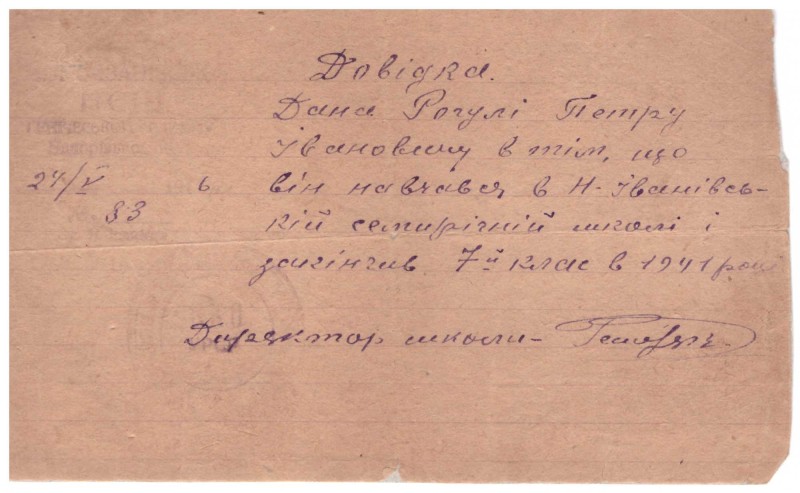 Довідка.
Дана Рогулі Петру
Івановичу в тім, що
він навчався в Н-Іванівсь-
кій семирічній школі і
закінчив 7й клас в 1941 році
24/V 6
33
Директор школи-